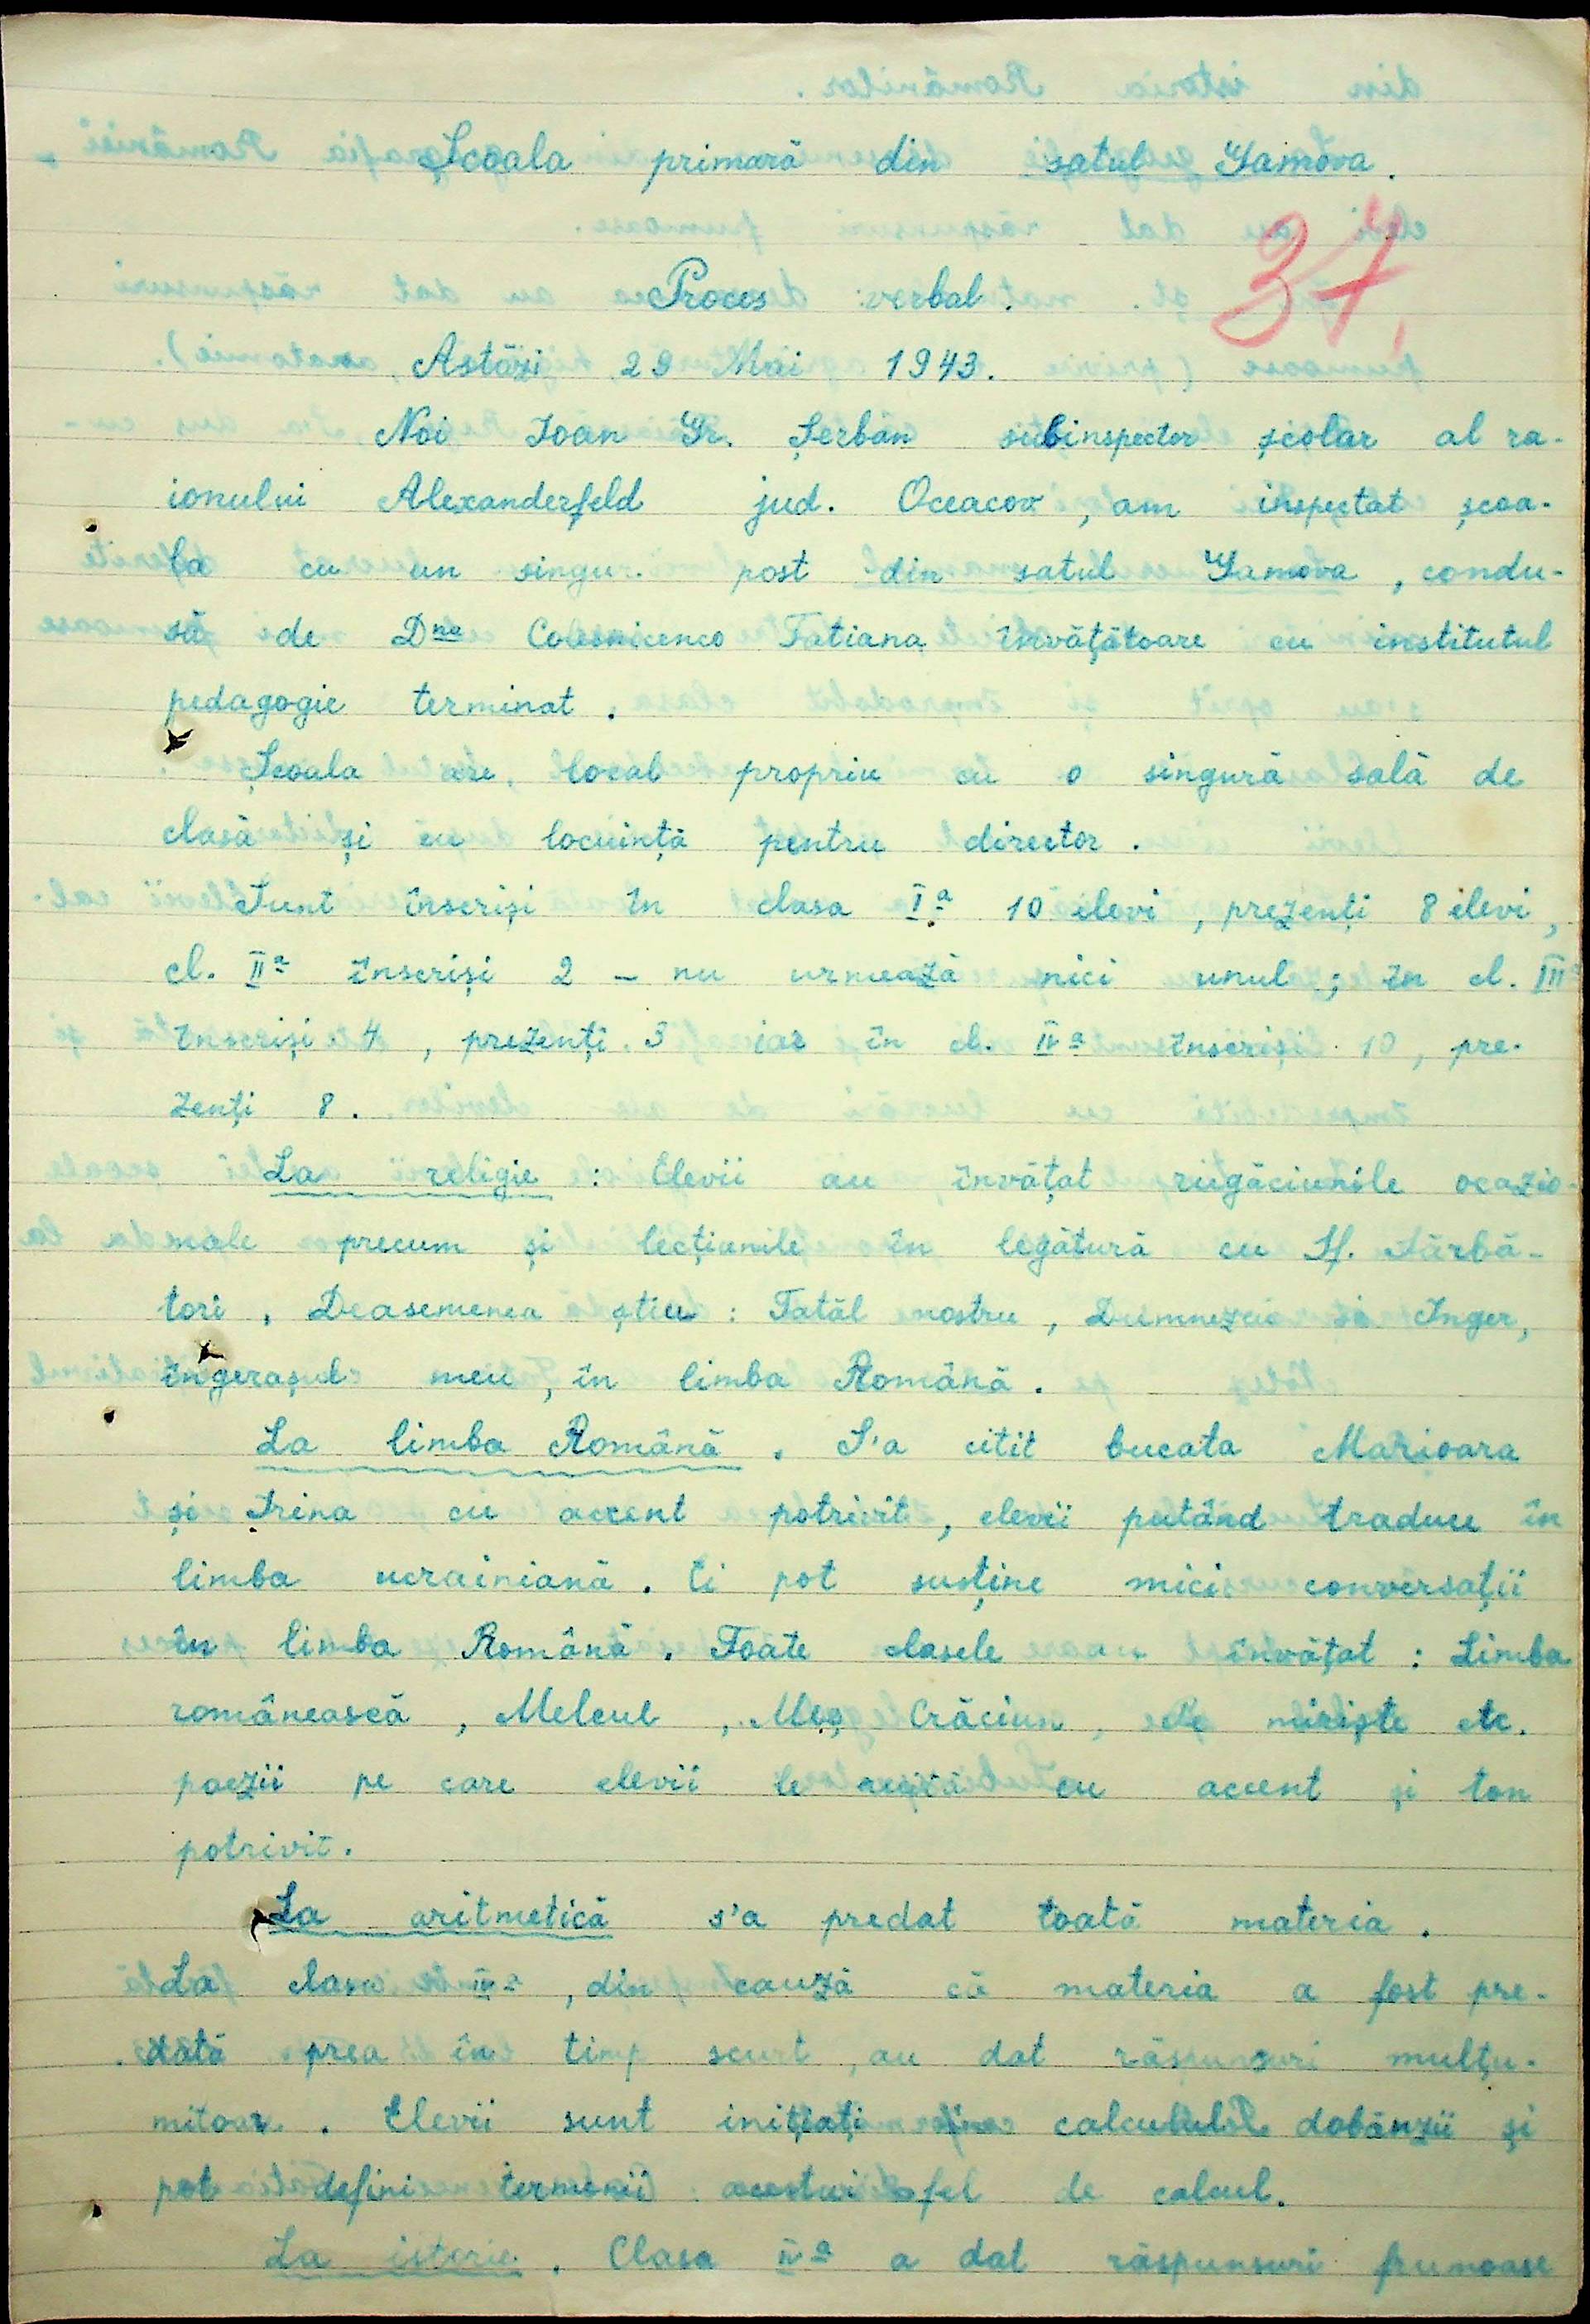 Școala primară din satul Gamova.
37.
Proces verbal.
Astăzi 29 Mai 1943.
Noi Ioan Gr. Șerban subinspector școlar al ra-
ionului Alexanderfeld jud. Oceacov, am inspectat școa-
la cu un singur post din satul Gamova, condu-
să de Dna Colesnicenco Tatiana învățătoare cu institutul
pedagogic terminat.
Școala are local propriu cu o singură sală de
clasă și cu locuință pentru director.
Sunt înscriși în clasa Ia 10 elevi, prezenți 8 elevi,
cl. IIa înscriși 2 – nu urmează nici unul; în cl. III
înscriși 4, prezenți 3 iar în cl. IVa înscriși 10, pre-
zenți 8.
La religie: Elevii au învățat rugăciunile ocazio-
nale precum și lecțiunile în legătură cu Sf. Sărbă-
tori, Deasemenea știu: Tatăl nostru, Dumnezeu și Inger,
îngerașul meu, în limba Română.
La limba Română. S'a citit bucata Marioara
și Irina cu accent potrivit, elevii putând traduce în
limba ucrainiană. Ei pot susține mici conversații
în limba Română. Toate clasele învățat: Limba
românească, Melcul, Moș Crăciun, Pe miriște etc.
poezii pe care elevii le recită cu accent și ton
potrivit.
La aritmetică s'a predat toată materia.
La clasa IVa, din cauză că materia a fost pre-
dată prea în timp scurt, au dat răspunsuri mulțu-
mitoare. Elevii sunt inițiați calculul dobânzii și
pot defini termenii acestui fel de calcul.
La istorie. Clasa IVa a dat răspunsuri frumoase